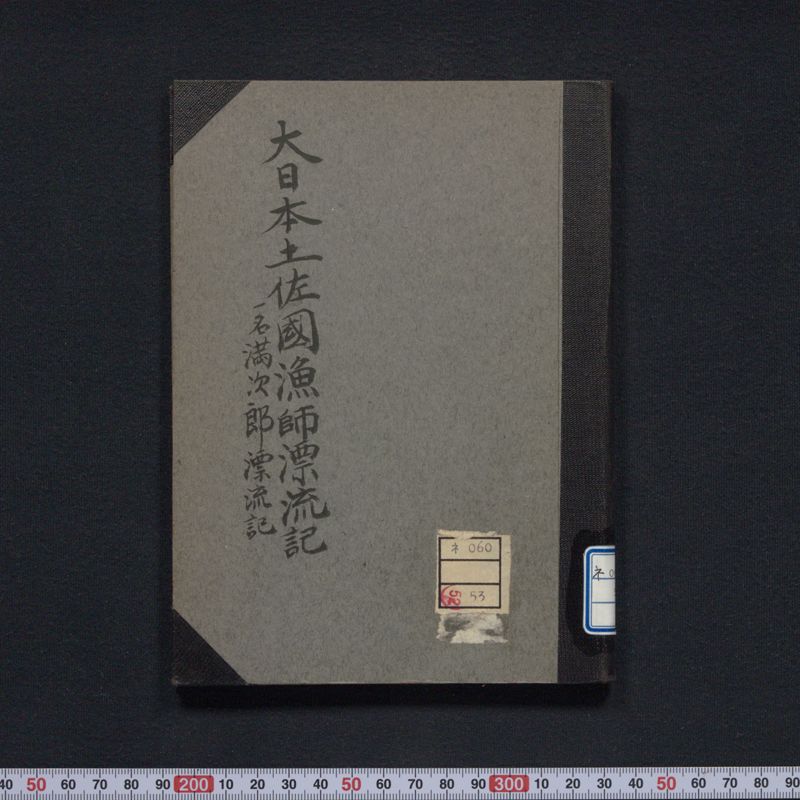 大日本土佐國漁師漂流記
一名満次郎漂流記
ネ 060
53
52
ネ 0
40 50 60 70 80 90 200 10 20 30 40 50 60 70 80 90 300 10 20 30 40 50 60 70 80 90